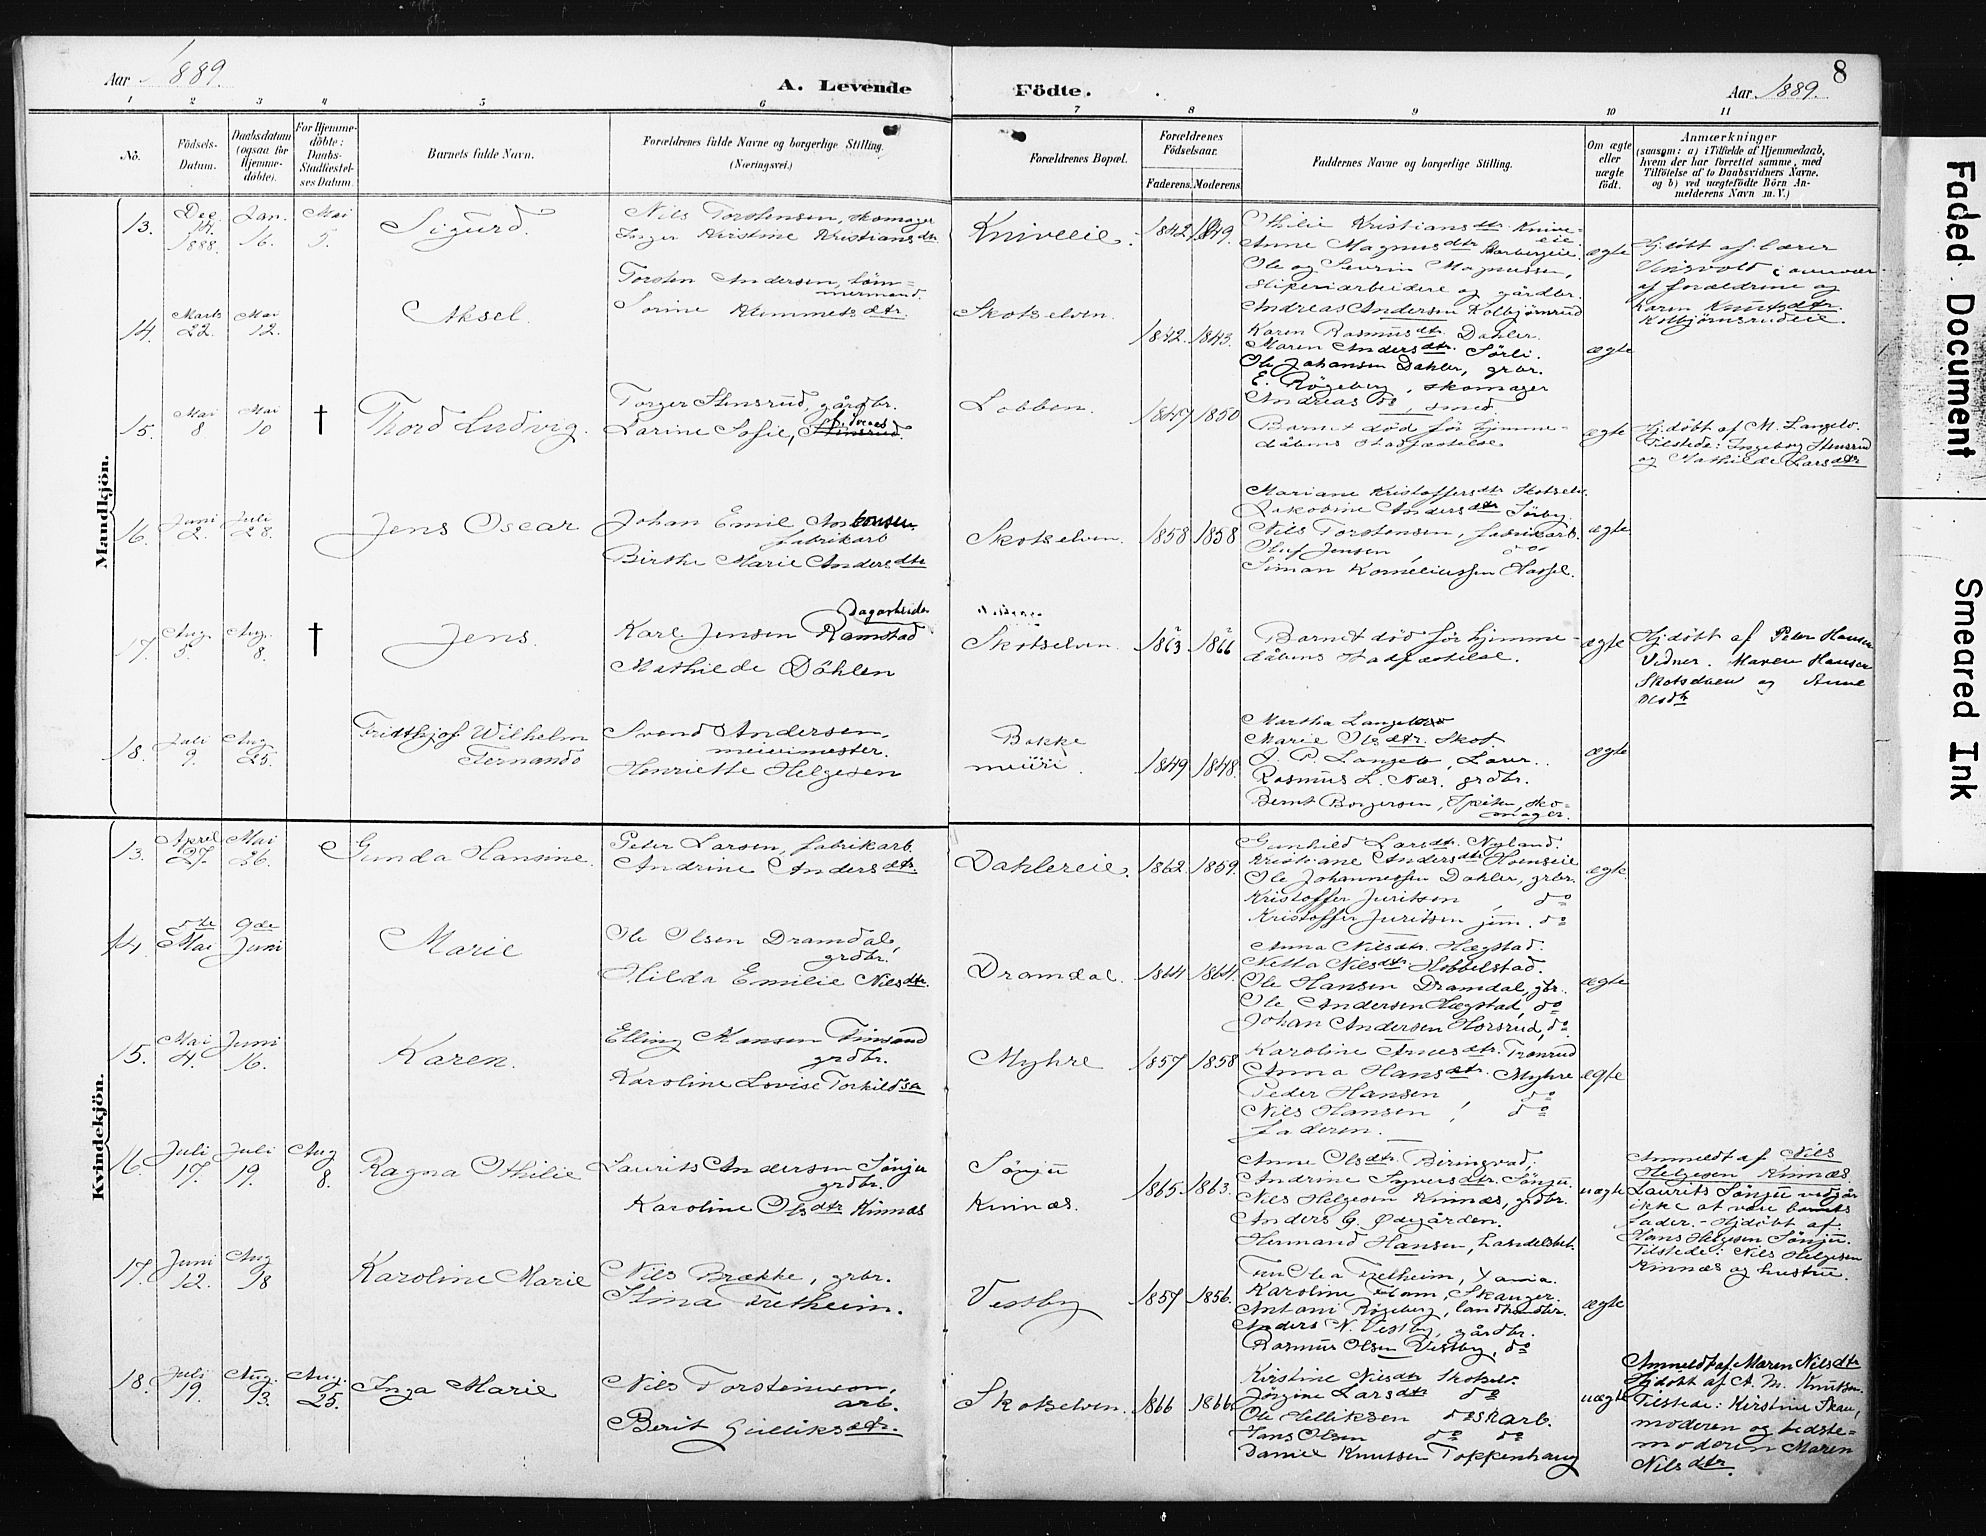 8
Aar 1889.
A. Levende Födte.
Aar 1889.
1 2 3 4 5 6 7 8 9 10 11
No.
Födsels-Datum.
Daabsdatum (ogsaa for Hjemmedöbte).
For Hjemmedöbte: Daabs-Stadfæstelses Datum
Barnets fulde Navn.
Forældrenes fulde Navne og borgerlige Stilling. (Næringsvei.)
Forældrenes Bopæl.
Forældrenes Födselsaar.
Faderens. Moderens.
Faddernes Navne og borgerlige Stilling.
Om ægte eller uægte födt.
Anmærkninger
(saasom: a) i Tilfælde af Hjemmedaab,
hvem der har forrettet samme, med
Tilföielse af to Daabsvidners Navne.
og b) ved uægtefödte Börn Anmelderens Navn m.V.)
Mandkjön.
13.
Dec. 14. 1888.
Jan. 16.
Mai 5.
Sigurd.
Nils Torstensen, skomager
Inger Kirstine Kristiansdtr
Kniveeie.
1842 1849.
Othilie Kristiansdtr. Kniveeie
Anne Magnusdtr
Ole og Severin Magnussen,
sliperiarbeidere og gårdbr.
ægte
Hj.døbt af lærer
Tingvold i overvær
af forældrene og
Karen Knutsdtr.
Kolbjørnsrudeie.
14.
Marts 22.
Mai 12.
Aksel.
Torsten Andersen, tømmermand.
Sorine Klemmetsdtr.
Skotselven.
1842. 1843.
Andreas Andersen Kolbjørnsrud
Karen Rasmusdtr. Dahler.
Maren Andersdtr. Sørli.
Ole Johansen Dahler, grbr.
E. Røgeberg, skomager
Andreas do, smed.
ægte
15.
Mai 8
Mai 10
†
Thord Ludvig.
Torger Stensrud, gårdbr.
Larine Sofie,
Lobben.
1847 1850
Barnet død før hjemmedåbens stadfæstelse
ægte
Hj.døbt af M. Langelo.
Tilstede: Ingeborg Stensrud
og Mathilde Larsdtr
16.
Juni 2.
Juli 28.
Jens Oscar
Johan Emil Antonsen.
fabrikarb
Birthe Marie Andersdtr
Skotselven.
1858 1858
Mariane Kristoffersdtr Skotselv.
Jakobine Andersdtr Sørby.
Nils Torstensen, fabrikarb.
Oluf Jensen do
Simon Korneliussen Hassel.
ægte
17.
Aug. 5.
Aug. 8.
†
Jens.
Dagarbeider
Karl Jensen Ramstad
Mathilde Döhlen
Skotselven.
1863 1866
Barnet død før hjemmedåbens stadfæstelse.
ægte
Hj.døbt af Peter Hansen
Vedner. Maren Hansen
Skotselven og Anne
Olsdtr
18.
Juli 9.
Aug. 25.
Fridthjof Wilhelm
Fernando
Svend Andersen,
meierimester.
Henriette Helgesen
Bakke
meieri.
1849 1848.
Martha Langelo
Marie Olsdtr. Skot.
J. P. Langelo, Lærer.
Rasmus L. Næs. grdbr.
Bernt Borgersen, Speiten, skomager.
ægte
Kvindekjön.
13.
April 27.
Mai 26.
Gunda Hansine.
Peter Larsen, fabrikarb.
Andrine Andersdtr
Dahlereie.
1862. 1859.
Gunhild Larsdtr. Nyland.
Kristiane Andersdtr Hoenseie
Ole Johannessen Dahler, grbr.
Kristoffer Juritsen, do
Kristoffer Juritsen jun. do
ægte.
14.
5te Mai
9de Juni
Marie
Ole Olsen Dramdal,
grdbr.
Hilda Emilie Nilsdtr.
Dramdal.
1864 1864.
Anna Nilsdtr. Hægstad.
Netta Nilsdtr Hobbelstad.
Ole Hansen Dramdal, gbr.
Ole Andersen Hægstad, do
Johan Andersen Horsrud, do
ægte
15.
Mai 4.
Juni 16.
Karen.
Elling Hansen Timsand
grdbr.
Karoline Lovise Torkildsdtr
Myhre
1857 1858
Karoline Arnesdtr. Tronrud
Anna Hansdtr. Myhre
Peder Hansen do
Nils Hansen, do
faderen.
ægte
16.
Juli 17.
Juli 19.
Aug 8.
Ragna Othilie
Laurits Andersen Sønju
grdbr.
Karoline Olsdtr Kinnæs
Sønju
Kinnæs.
1865. 1863.
Anne Olsdtr. Biringvad,
Andrine Syversdtr. Sønju.
Nils Helgesen Kinnæs, grdbr.
Anders G. Ødegården.
Hermand Hansen, handelsbet.
uægte
Anmeldt af Nils
Helgesen Kinnæs.
Laurits Sønju vedgår
ikke at være barnets
fader. - Hj.døbt af
Hans Helgesen Sønju.
Tilstede: Nils Helgesen
Kinnæs og hustru.
17.
Juni 12.
Aug 18
Karoline Marie
Nils Brække, grbr.
Stina Tretheim.
Vestby
1857 1856.
Fru Olea Tretheim, Xania.
Karoline Flom, Skanger.
Antoni Røgeberg, landhandler.
Anders N. Vestby, gårdbr.
Rasmus Olsen Vestby, do
ægte
18.
Juli 19.
Aug. 13.
Aug. 25.
Inga Marie
Nils Torsteinson,
arb.
Berit Gulliksdtr.
Skotselven.
1866 1866.
Kirstine Nilsdtr Skotselv.
Jørgine Larsdtr do
Ole Helliksen do arb.
Hans Olsen do do
Daniel Knutsen Toppenhaug
uægte
Anmeldt af Maren Nilsdtr
Hj.døbt af A. M. Knutsen.
Tilstede: Kirstine Skau,
moderen og bedstemoderen Maren
Nilsdtr.
Faded Document Smeared Ink